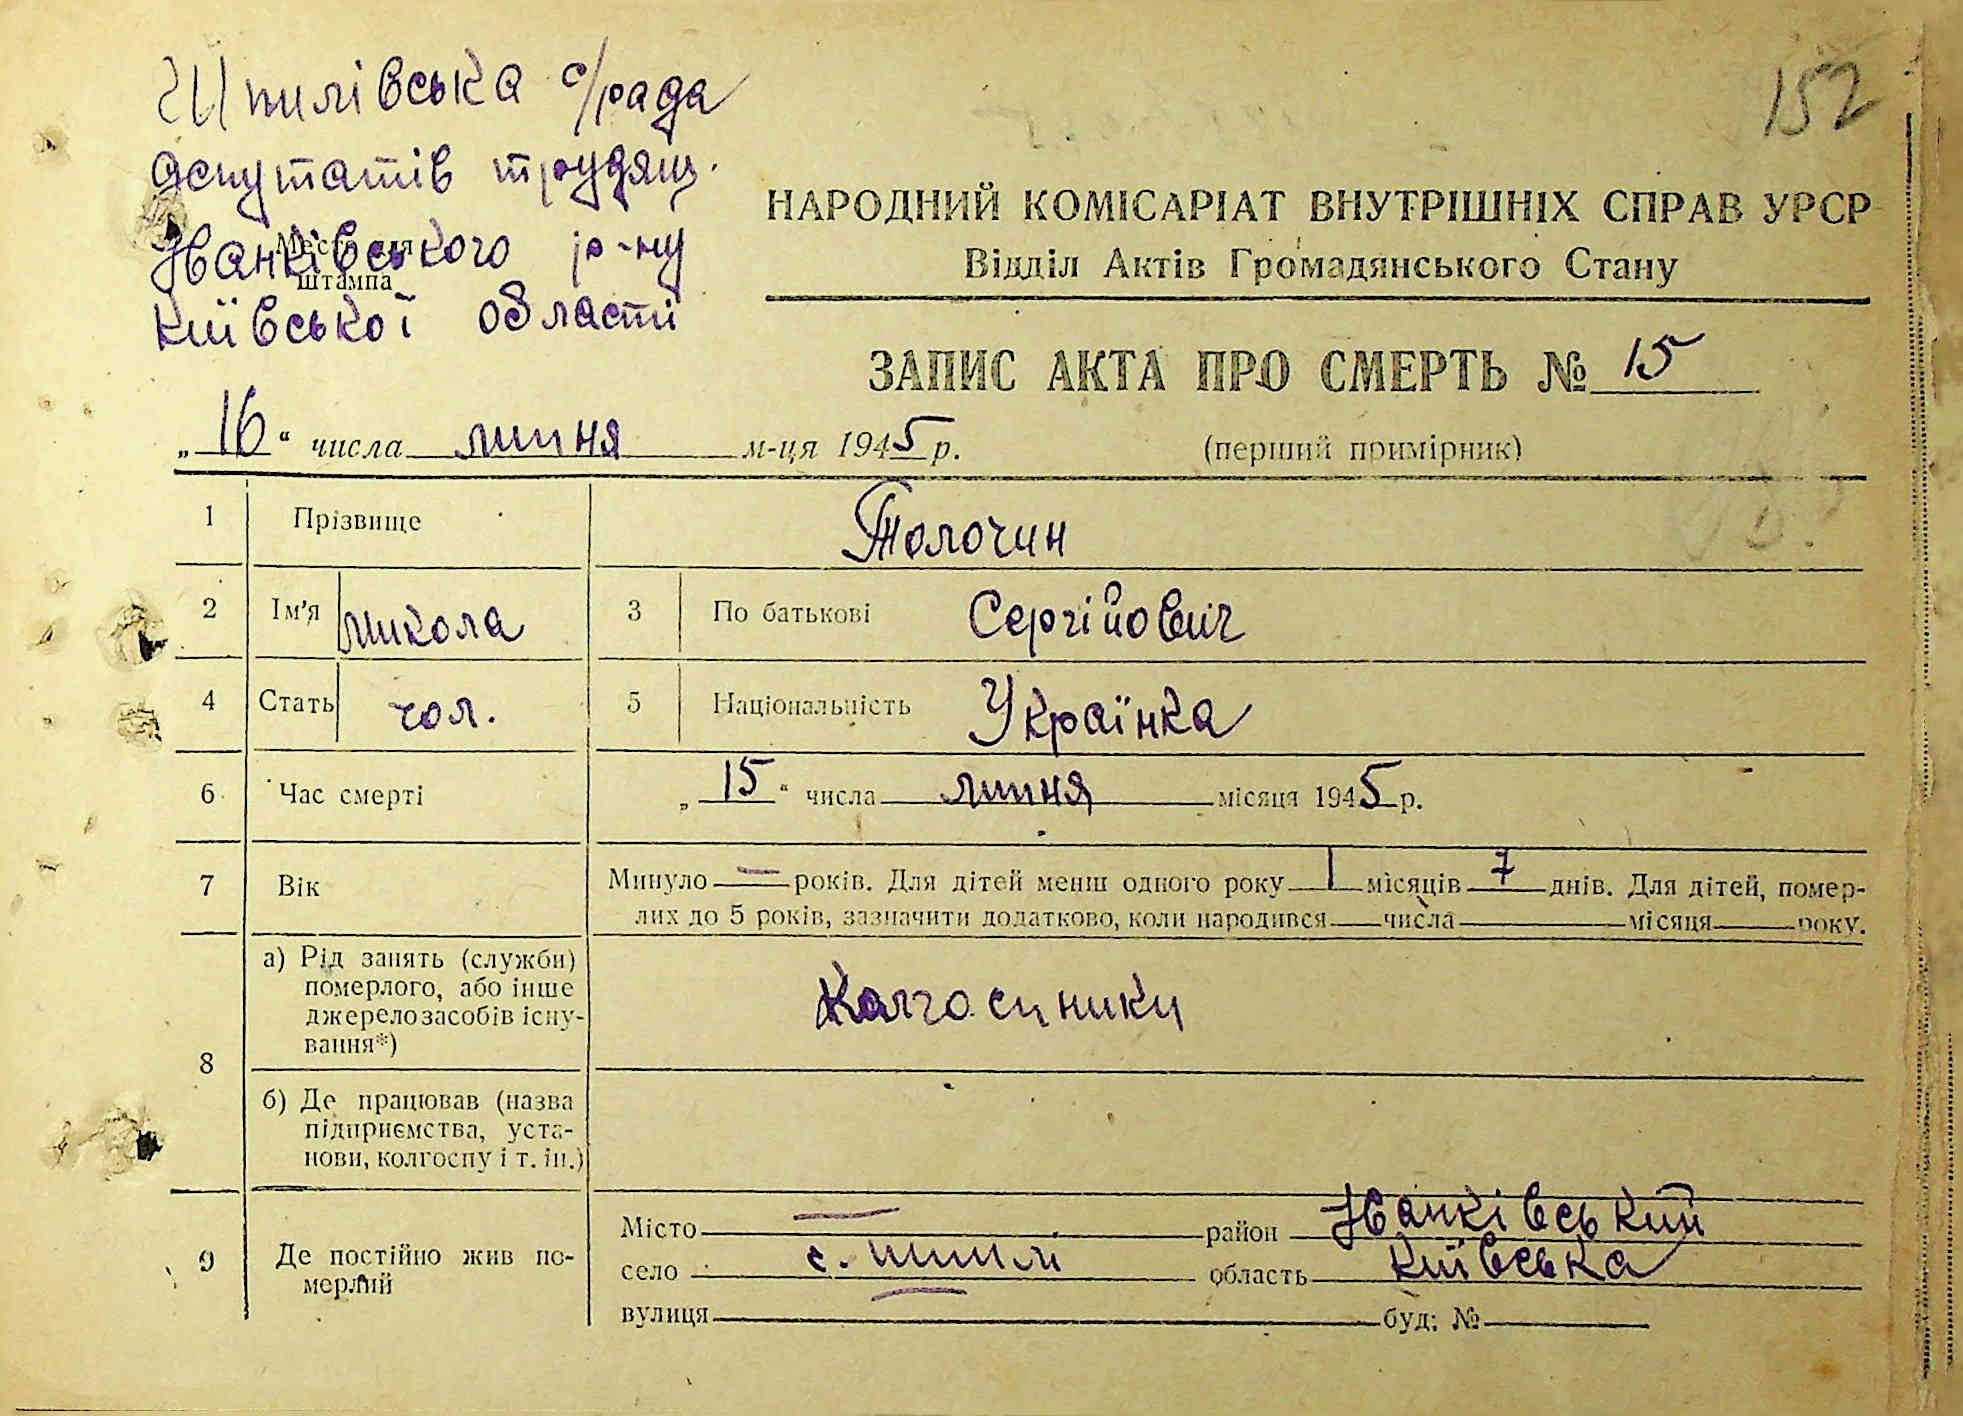 152
Шпилівська с/рада
депутатів трудящ.
Іванківського р-ну
Київської області
Место для
штампа
НАРОДНИЙ КОМІСАРІАТ ВНУТРІШНІХ СПРАВ УРСР
Відділ Актів Громадянського Стану
ЗАПИС АКТА ПРО СМЕРТЬ № 15
„16“ числа липня м-ця 1945 р.
(перший примірник)
1 Прізвище Толочин
2 Ім'я Микола 3 По батькові Сергійович
4 Стать чол. 5 Національність Українка
6 Час смерті „15“ числа липня місяця 1945 р.
7 Вік Минуло — років. Для дітей менш одного року 1 місяців 7 днів. Для дітей, помер-
лих до 5 років, зазначити додатково, коли народився числа місяця року.
8 а) Рід занять (служби)
померлого, або інше
джерело засобів існу-
вання*)
Колгоспники
б) Де працював (назва
підприємства, уста-
нови, колгоспу і т. ін.)
9 Де постійно жив по-
мерлий
Місто — район Іванківський
село с. Шпилі область Київська
вулиця — буд. №